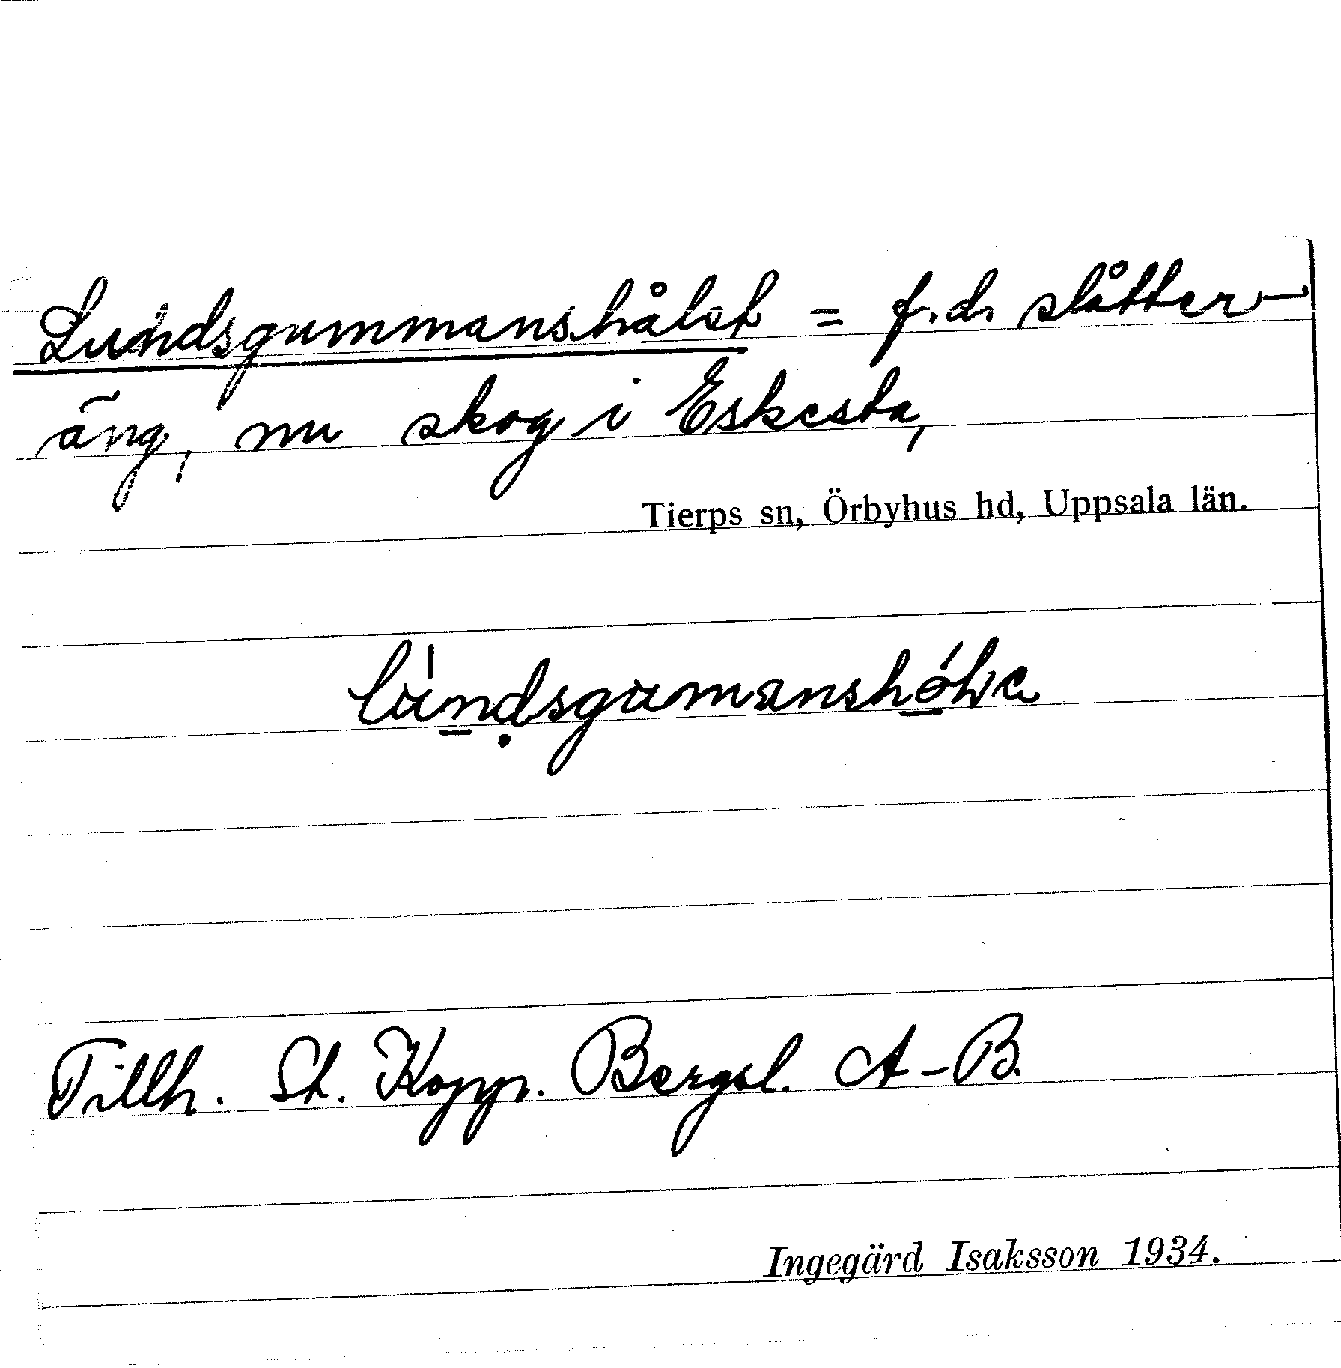 Lundsgummanshålet = f.d. slåtter-
äng, nu skog i Eskesta,
Tierps sn, Örbyhus hd, Uppsala län.
Tillh. St. Kopp. Bergsl. A-B.
Ingegärd Isaksson 1934.